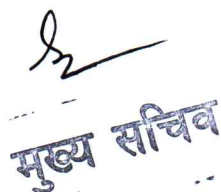 मुख्य सचिव